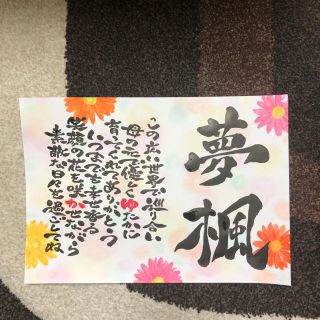 夢楓
この広い世界で巡り逢い
母の愛で優しくゆたかに
育ってくれてありがとう
いつまでも幸せ香る
笑顔の花を咲かせながら
素敵な日々を過ごしてね